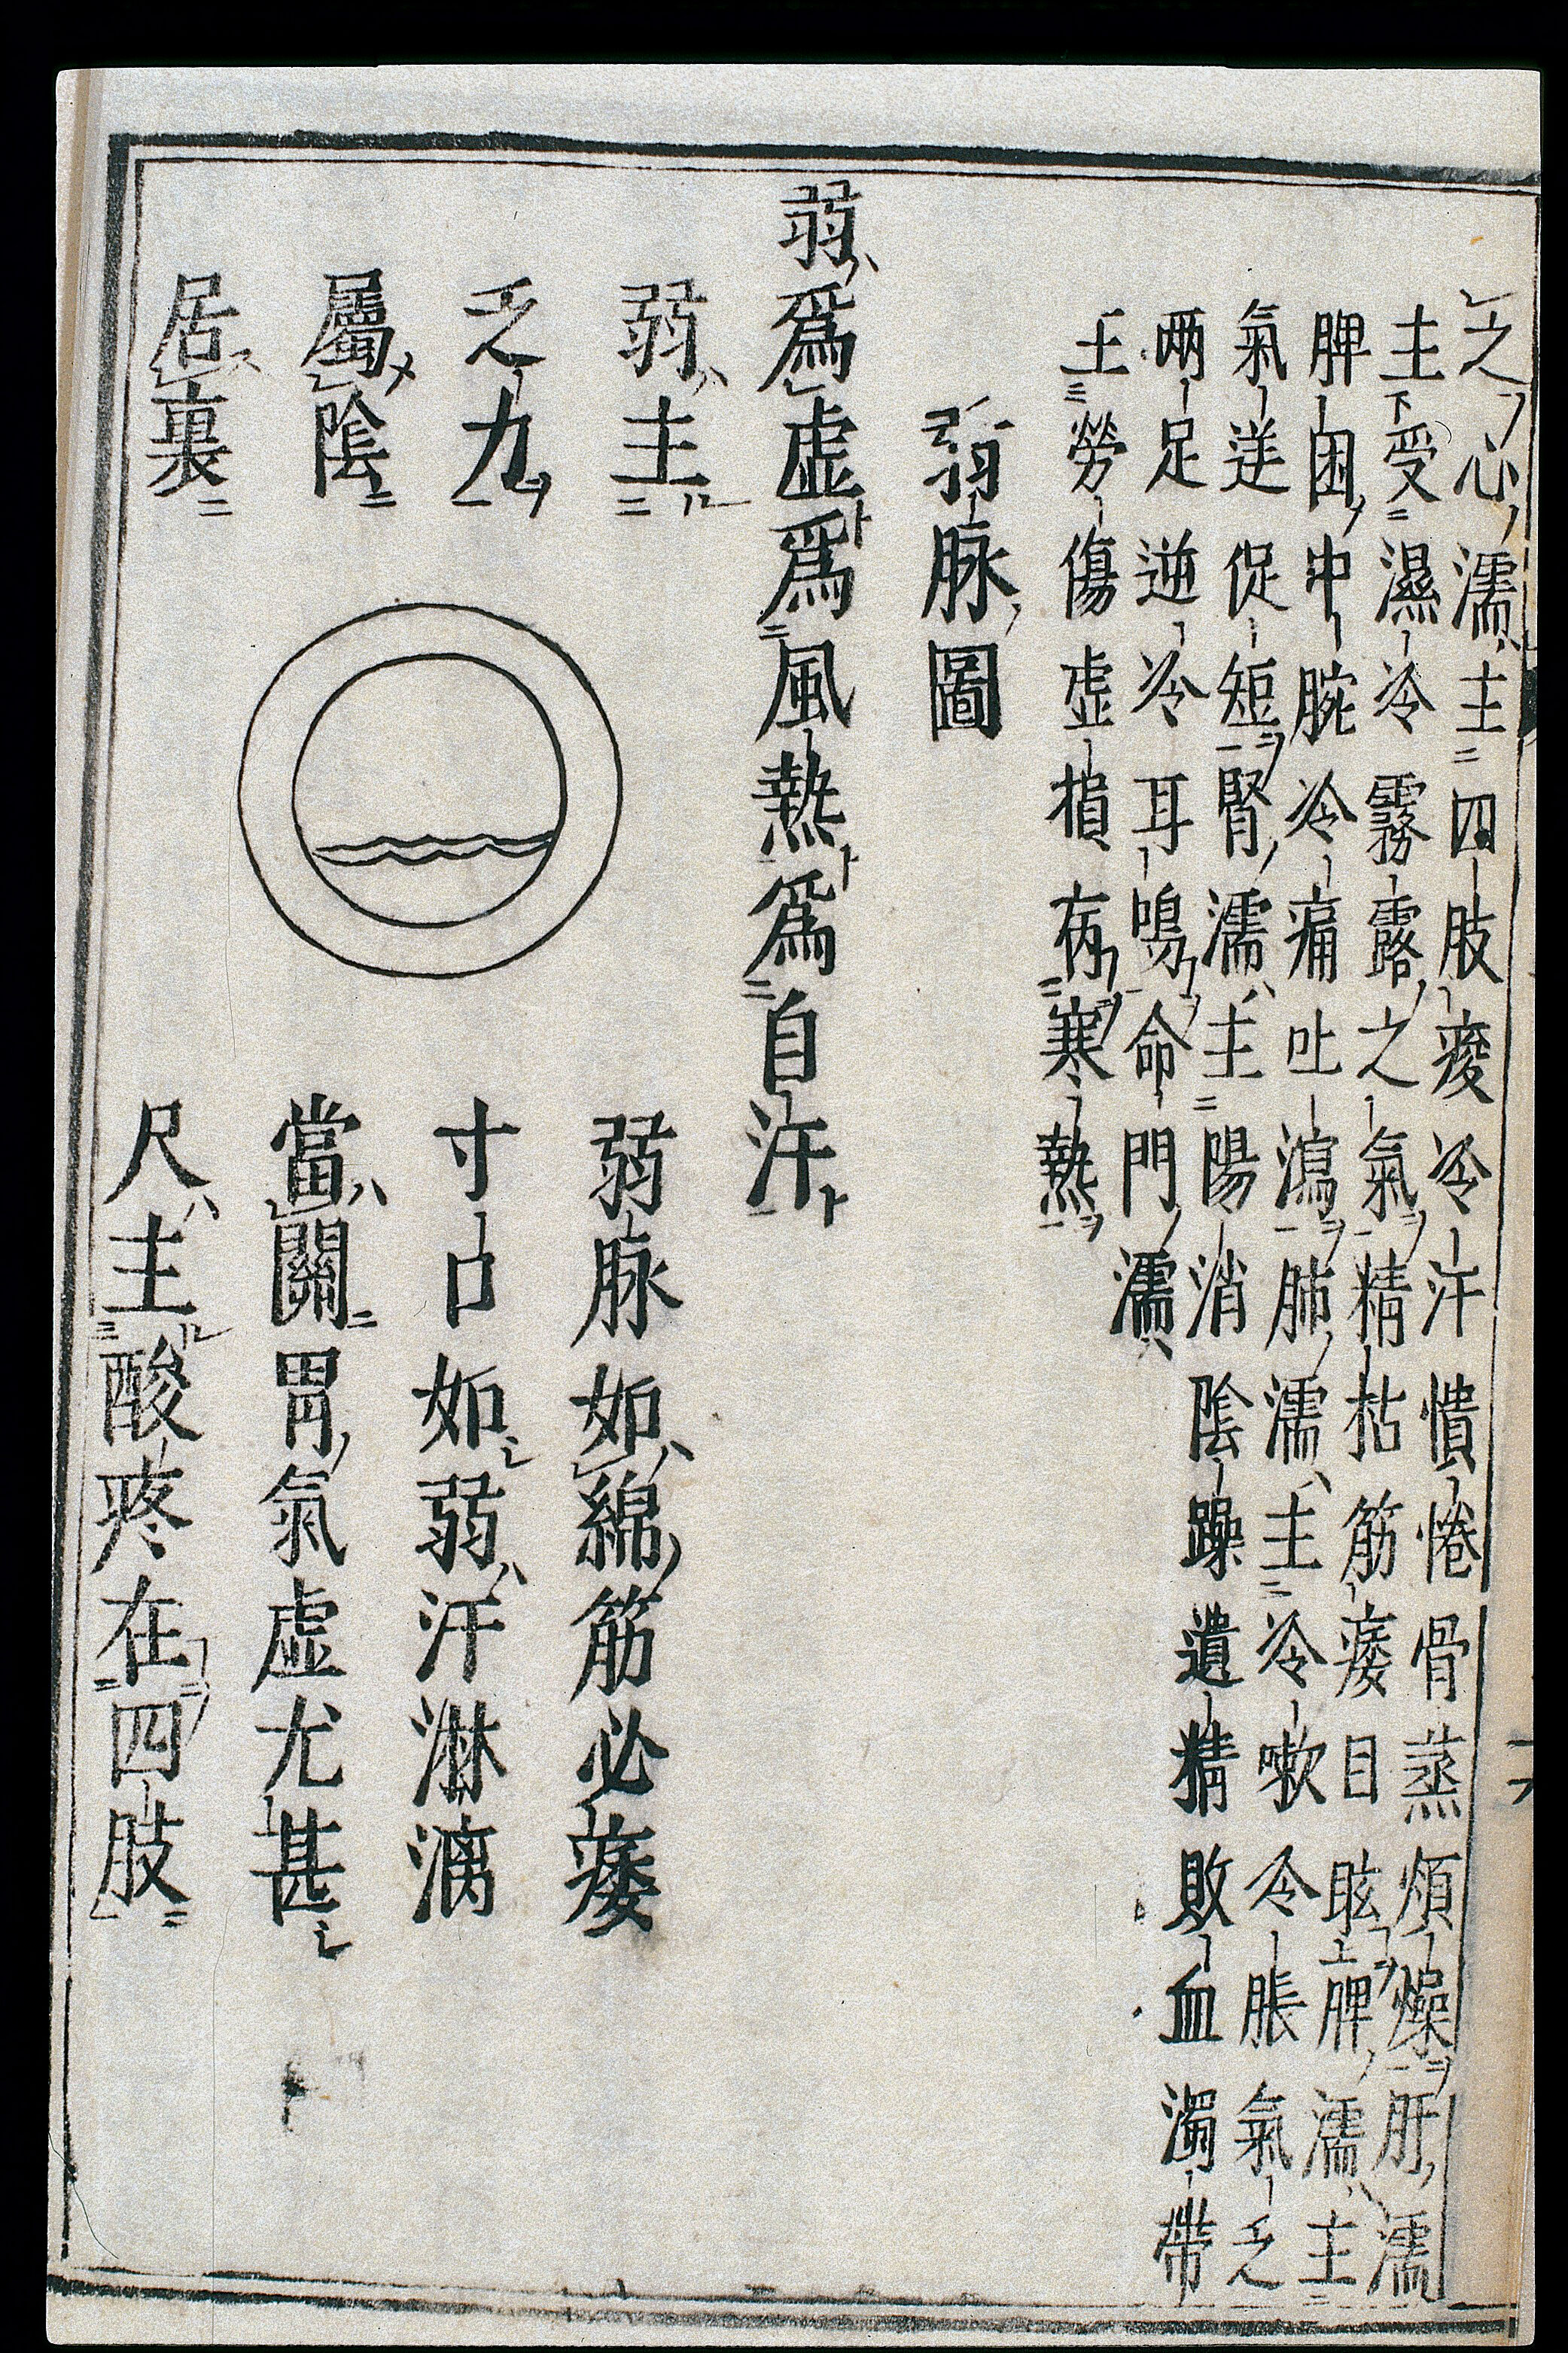 之心濡主四肢痠冷汗憒惓骨蒸煩燥肝濡
主受濕冷霧露之氣精枯筋痿目眩脾濡主
脾困中腕冷痛吐瀉肺濡主冷嗽冷脹氣乏
氣逆促短腎濡主陽消陰躁遺精敗血濁帶
兩足逆冷耳鳴命門濡
主勞傷虛損病寒熱
弱脉圖
弱爲虛爲風熱爲自汗
弱主
乏力
屬陰
居裏
弱脉如綿筋必痿
寸口如弱汗淋漓
當關胃氣虛尤甚
尺主酸疼在四肢